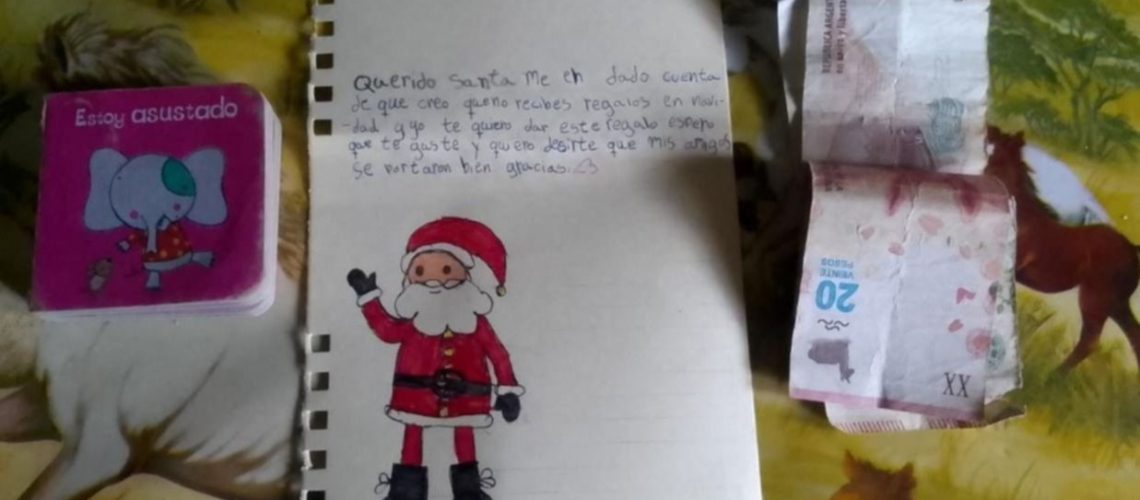 Estoy asustado
Querido Santa Me eh dado cuenta
de que creo queno recibes regalos en navi-
-dad y yo te quiero dar este regalo espero
que te guste y quiero desirte que mis amigos
se portaron bien gracias. <3
REPÚBLICA ARGENTINA
20
VEINTE
PESOS
XX